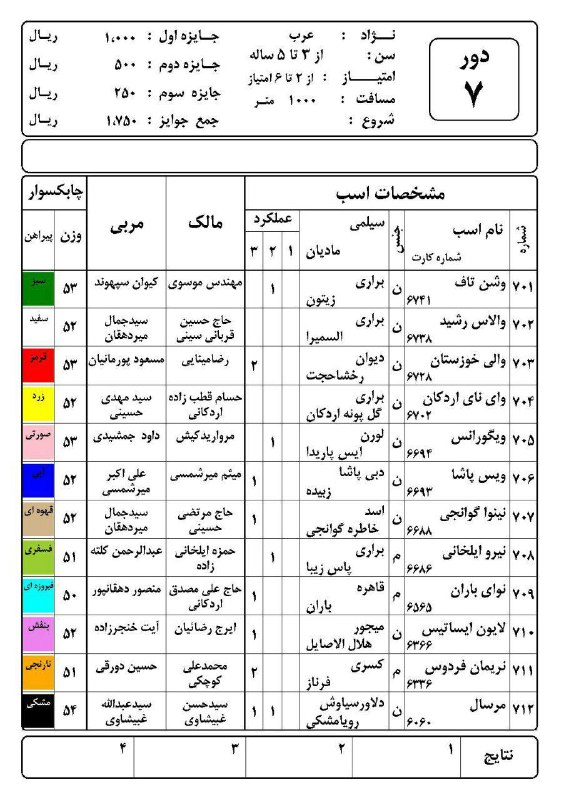 دور
۷
نــژاد : عرب
سن : از ۳ تا ۵ ساله
امتیــــاز : از ۲ تا ۶ امتیاز
مسافت : ۱۰۰۰ متر
شروع :
جـایزه اول : ۱،۰۰۰ ریــال
جـایزه دوم : ۵۰۰ ریــال
جایزه سوم : ۲۵۰ ریــال
جمع جوایز : ۱،۷۵۰ ریــال
مشخصات اسب مالک مربی چابکسوار
شماره نام اسب شماره کارت جنس سیلمی مادیان عملکرد ۱ ۲ ۳ وزن پیراهن
۷۰۱ وشن تاف ۶۷۴۱ ن براری زیتون ۱ مهندس موسوی کیوان سپهوند ۵۳ سبز
۷۰۲ والاس رشید ۶۷۳۸ ن براری السمیرا حاج حسین قربانی سینی سیدجمال میردهقان ۵۲ سفید
۷۰۳ والی خوزستان ۶۷۲۸ ن دیوان رخشاحجت ۲ رضامیتایی مسعود پورمانیان ۵۳ قرمز
۷۰۴ وای نای اردکان ۶۷۰۲ ن براری گل پونه اردکان حسام قطب زاده اردکانی سید مهدی حسینی ۵۲ زرد
۷۰۵ ویگورانس ۶۶۹۴ ن لورن ایس پاریدا ۱ مرواریدکیش داود جمشیدی ۵۳ صورتی
۷۰۶ ویس پاشا ۶۶۹۳ ن دبی پاشا زبیده ۱ میثم میرشمسی علی اکبر میرشمسی ۵۲ آبی
۷۰۷ نینوا گوانجی ۶۶۸۸ ن اسد خاطره گوانجی ۱ حاج مرتضی حسینی سیدجمال میردهقان ۵۲ قهوه ای
۷۰۸ نیرو ایلخانی ۶۶۸۶ م براری پاس زیبا ۱ حمزه ایلخانی زاده عبدالرحمن کلته ۵۱ فسفری
۷۰۹ نوای باران ۶۵۶۵ م قاهره باران ۱ حاج علی مصدق اردکانی منصور دهقانپور ۵۰ فیروزه ای
۷۱۰ لایون ایساتیس ۶۳۶۶ ن میجور هلال الاصایل ۱ ایرج رضائیان آیت خنجرزاده ۵۲ بنفش
۷۱۱ نریمان فردوس ۶۳۳۶ م کسری فرناز ۲ محمدعلی کوچکی حسین دورقی ۵۱ نارنجی
۷۱۲ مرسال ۶۰۶۰ ن دلاورسیاوش رویامشکی ۱ ۱ سیدحسن غبیشاوی سیدعبدالله غبیشاوی ۵۴ مشکی
نتایج ۱ ۲ ۳ ۴